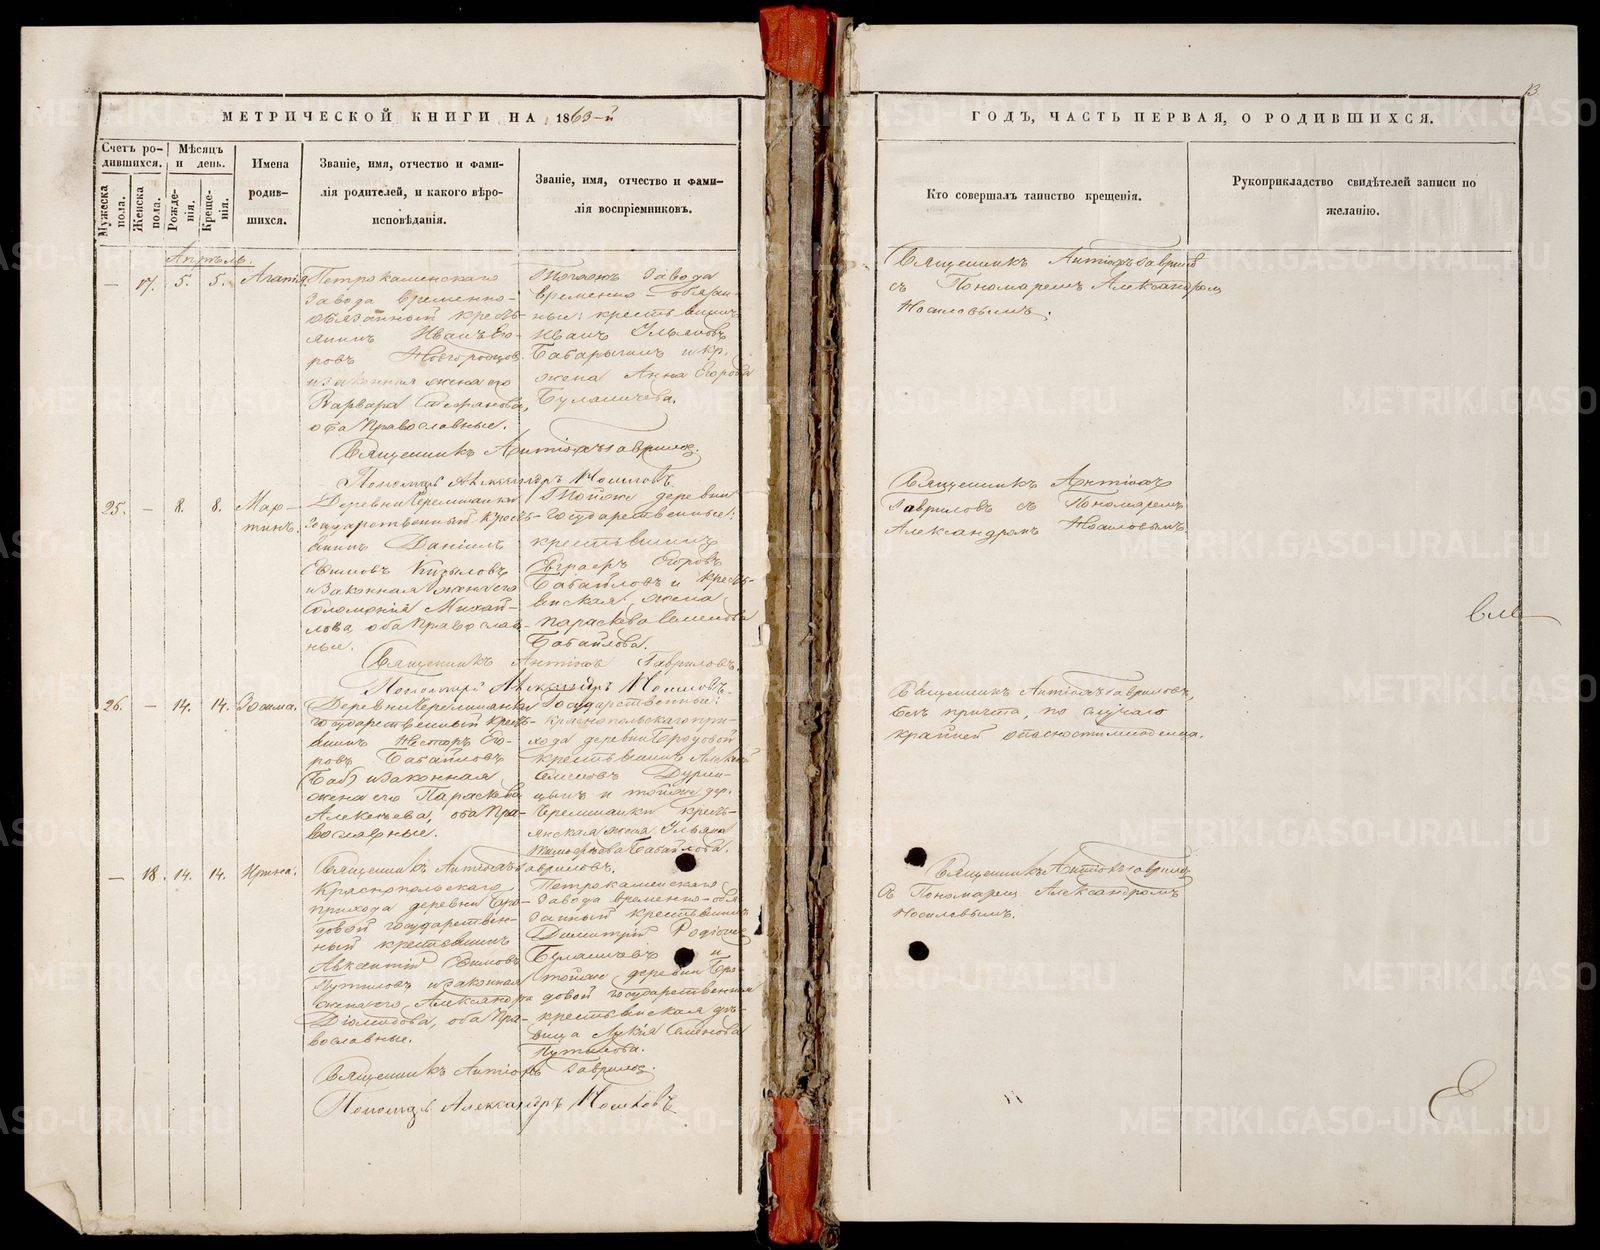 МЕТРИЧЕСКОЙ КНИГИ НА 1863-й
Счетъ родившихся.
Мужеска пола.
Женска пола.
Мѣсяцъ и день.
Рожденія.
Крещенія.
Имена родившихся.
Званіе, имя, отчество и фамилія родителей, и какого вѣроисповѣданія.
Званіе, имя, отчество и фамилія воспріемниковъ.
Апрѣль.
— 17. 5. 5. Агапія
Петрокаменскаго
завода временно-
обязанный кресть-
янинъ Иванъ Его-
ровъ Новгородцов
и законная жена его
Варвара Стефанова,
оба Православные.
Тогожъ завода
временно-обязан-
ные: крестьянинъ
Иванъ Ульяновъ
Бабарыкинъ и кр.
жена Анна Егорова
Булашчева.
Священникъ Антіохъ Гавриловъ.
Пономарь Александръ Носиловъ.
25. — 8. 8. Мар-
тинъ.
Деревни Черемшанки
государственный кресть-
янинъ Даніилъ
законная жена его
Соломонія Михай-
лова, оба Православ-
ные.
Тойже деревни
государственные:
крестьянинъ
Егоровъ
Бабайловъ и кресть-
янская жена
Параскева Семенова
Бабайлова.
Священникъ Антіохъ Гавриловъ.
Пономарь Александръ Носиловъ.
26. — 14. 14. Зосима.
Деревни Черемшанки
государственный кресть-
янинъ Несторъ Его-
ровъ Бабайловъ
и законная
жена его Параскева
Алексѣева, оба Пра-
вославные.
Государственной:
Краснопольскаго при-
хода деревни Бродовой
крестьянинъ
Семеновъ
и тойже дер.
Черемшанки кресть-
янская жена Ульяна
Бабайлова.
Священникъ Антіохъ Гавриловъ.
— 18. 14. 14. Ирина.
Краснопольскаго
прихода деревни Бро-
довой государствен-
ный крестьянинъ
Авксентій
Путиловъ и законная
жена его Александра
Діомидова, оба Пра-
вославные.
Петрокаменскаго
завода временно-обя-
занный крестьянинъ
Димитрій Родіонов
Булашчевъ и
тойже деревни Бро-
довой государственная
крестьянская дѣ-
вица Лукія Семенова
Путилова.
Священникъ Антіохъ Гавриловъ.
Пономарь Александръ Носиловъ
13.
ГОДЪ, ЧАСТЬ ПЕРВАЯ, О РОДИВШИХСЯ.
Кто совершалъ таинство крещенія.
Рукоприкладство свидѣтелей записи по желанію.
Священникъ Антіохъ Гавриловъ
съ Пономаремъ Александромъ
Носиловымъ.
Священникъ Антіохъ
Гавриловъ съ Пономаремъ
Александромъ Носиловымъ.
Священникъ Антіохъ Гавриловъ,
безъ причта, по случаю
крайней опасности младенца.
Священникъ Антіохъ Гавриловъ
съ Пономаремъ Александромъ
Носиловымъ.
METRIKI.GASO-URAL.RU